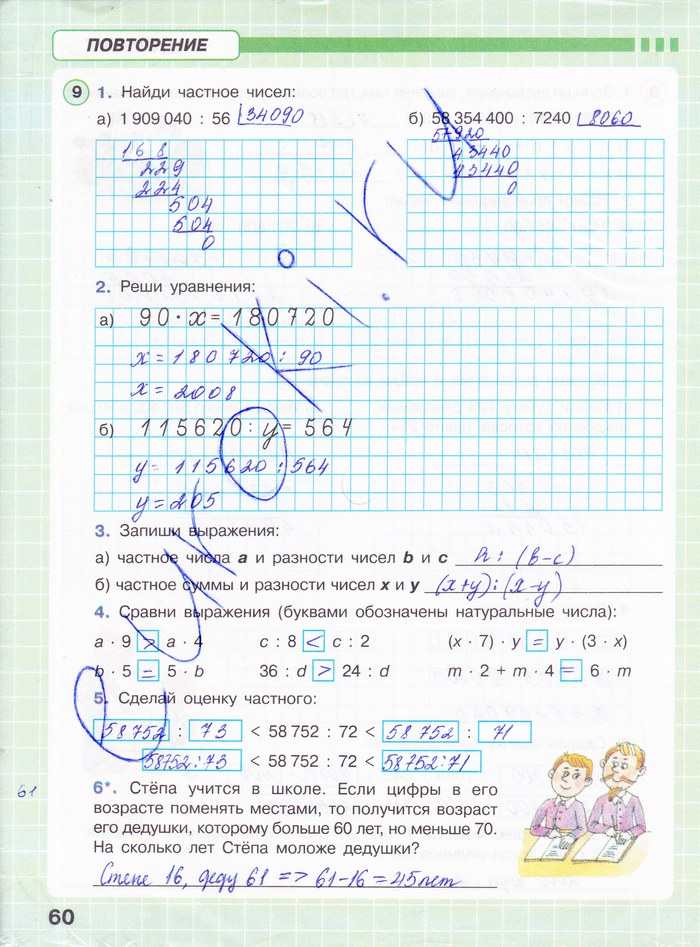 ПОВТОРЕНИЕ
9 1. Найди частное чисел:
а) 1 909 040 : 56 34090
б) 58 354 400 : 7240 8060
168
229
224
504
504
0
57920
43440
43440
0
2. Реши уравнения:
а) 90 · x = 180720
x = 180 720 : 90
x = 2008
б) 115620 : y = 564
y = 115620 : 564
y = 205
3. Запиши выражения:
а) частное числа a и разности чисел b и c h : (b-c)
б) частное суммы и разности чисел x и y (x+y):(x-y)
4. Сравни выражения (буквами обозначены натуральные числа):
a · 9 > a · 4 c : 8 < c : 2 (x · 7) · y = y · (3 · x)
b · 5 = 5 · b 36 : d > 24 : d m · 2 + m · 4 = 6 · m
5. Сделай оценку частного:
58752 : 73 < 58 752 : 72 < 58 752 : 71
58752:73 < 58 752 : 72 < 58752:71
61
6*. Стёпа учится в школе. Если цифры в его
возрасте поменять местами, то получится возраст
его дедушки, которому больше 60 лет, но меньше 70.
На сколько лет Стёпа моложе дедушки?
Степе 16, деду 61 => 61-16 = 45 лет
60